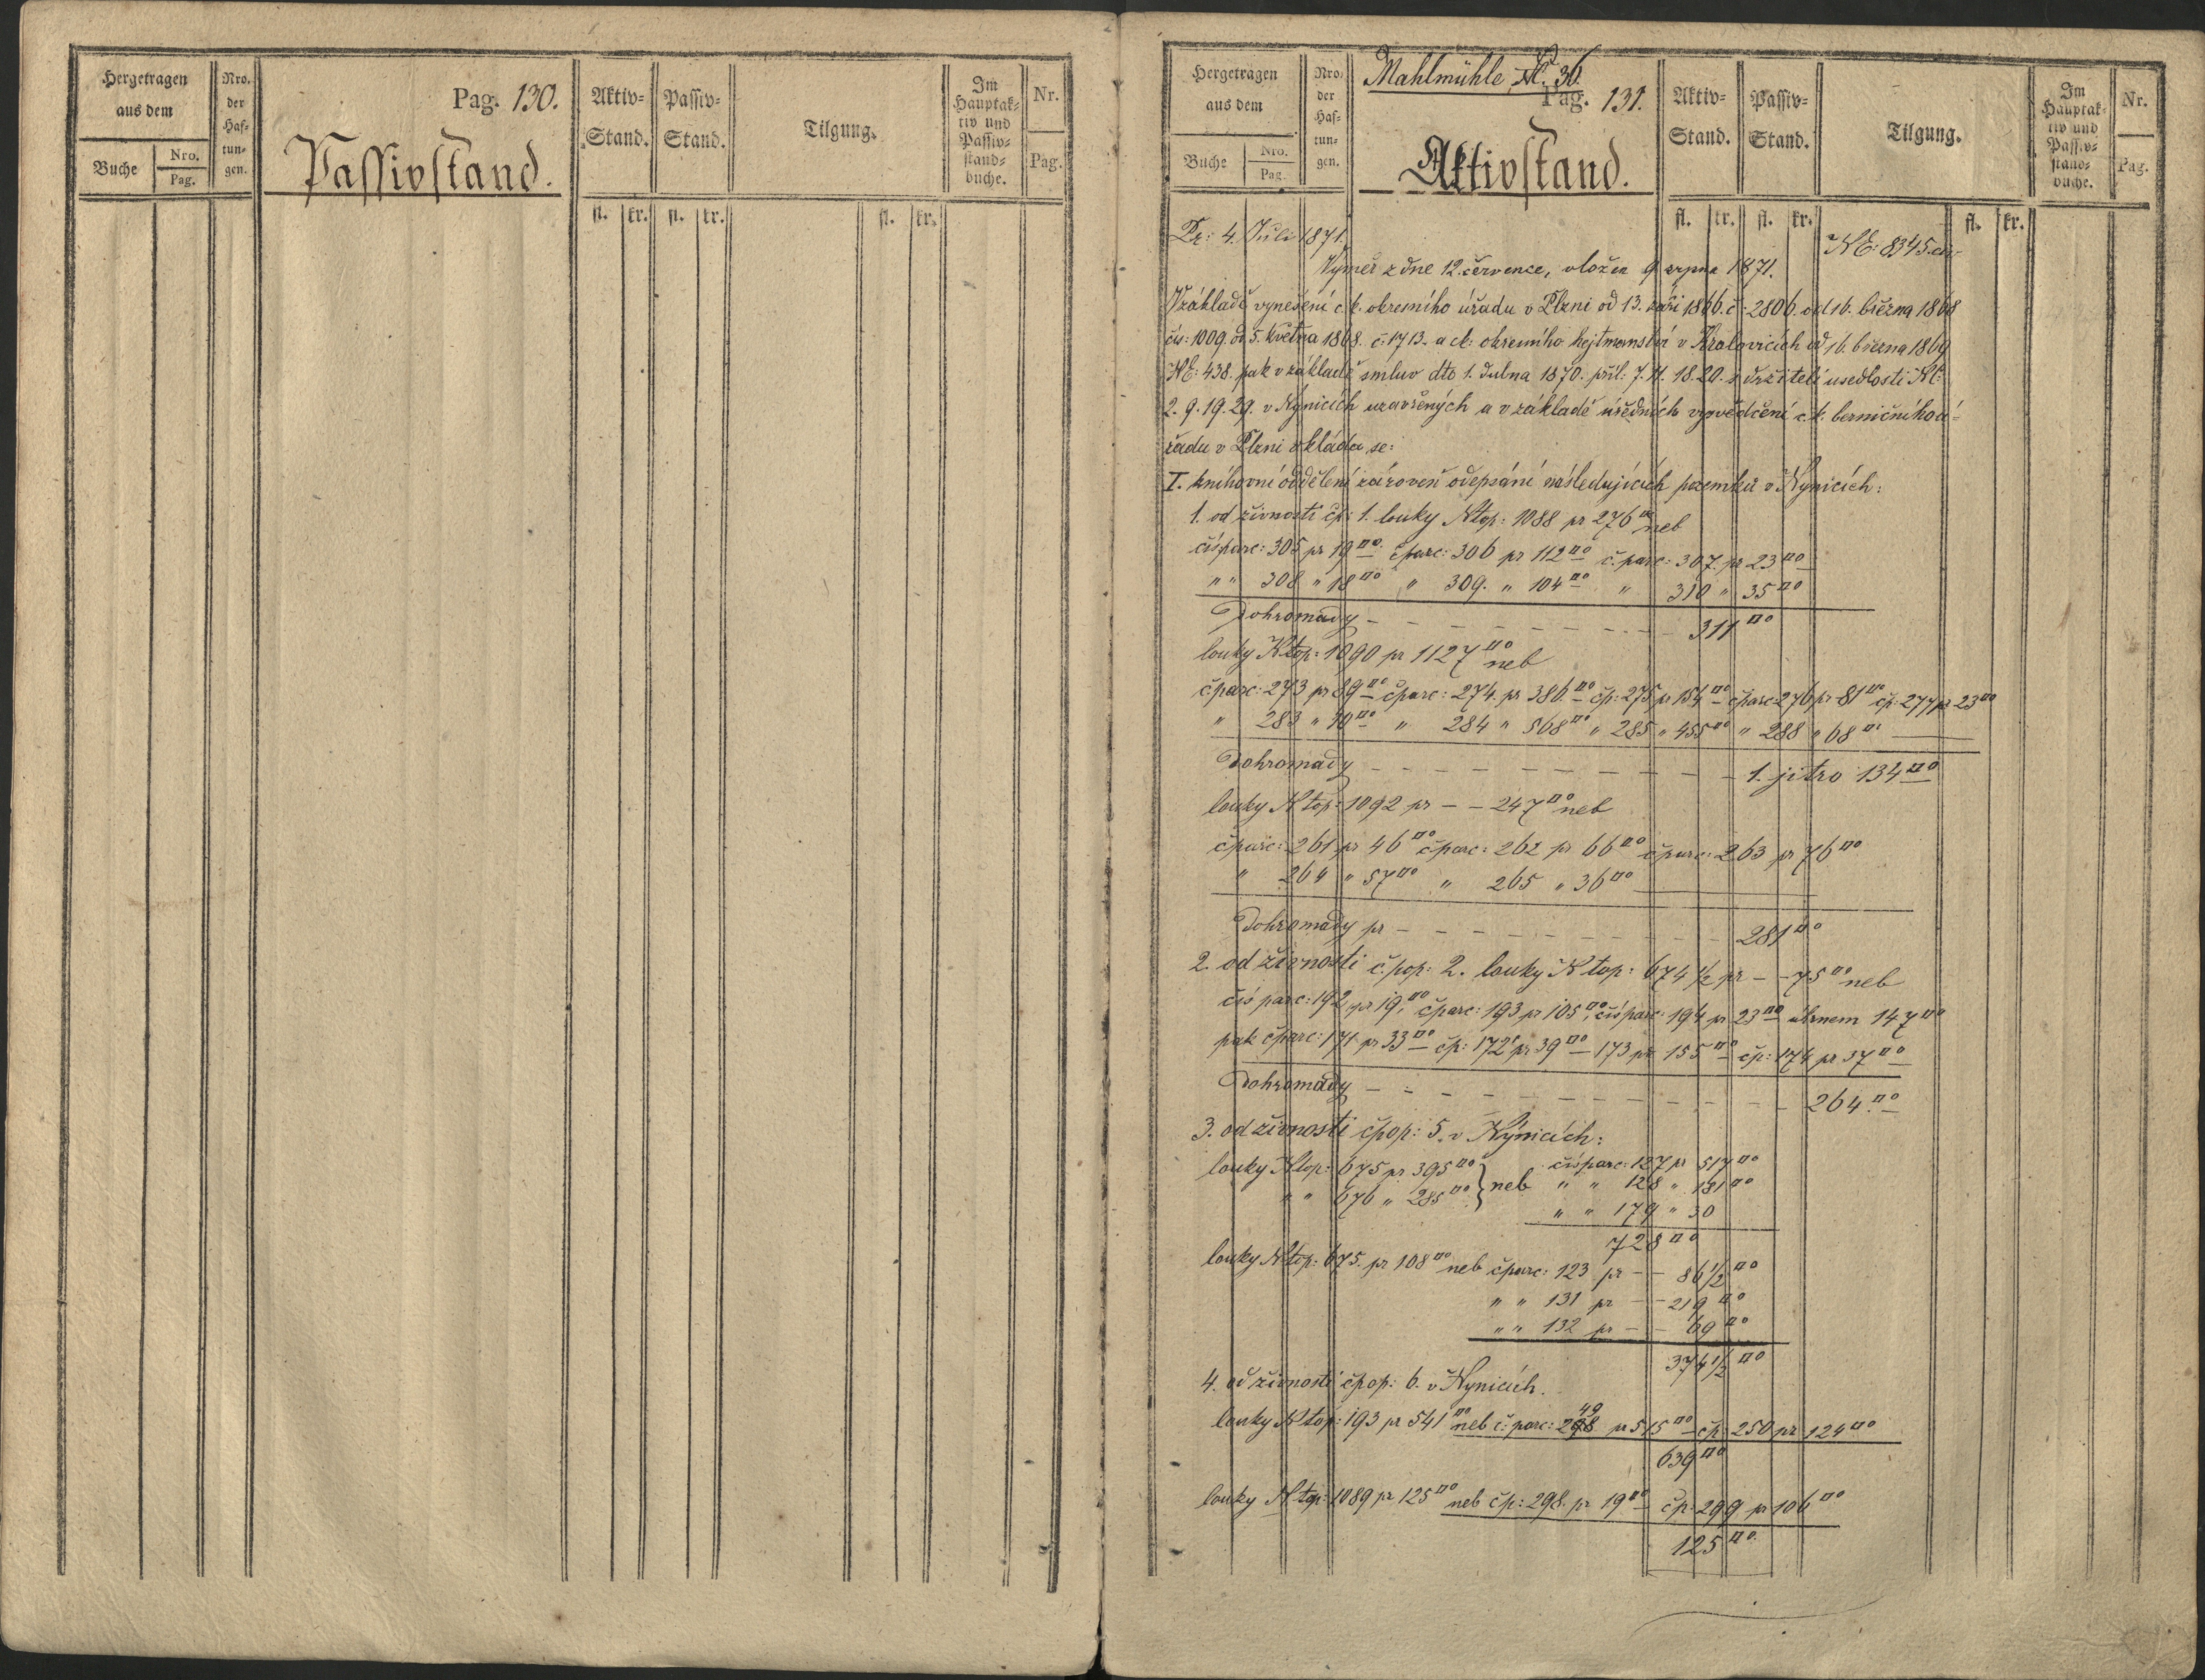 Hergetragen
aus dem
Buche
Nro.
Pag.
Nro.
der
Haf-
tun-
gen.
Pag. 130.
Passivstand.
Aktiv-
Stand.
Passiv-
Stand.
Tilgung.
Im
Hauptak-
tiv und
Passiv-
stand-
buche.
Nr.
Pag.
fl. kr. fl. kr. fl. kr.
Hergetragen
aus dem
Buche
Nro.
Pag.
Nro.
der
Haf-
tun-
gen.
Mahlmühle N. 36.
Pag. 131.
Aktivstand.
Aktiv-
Stand.
Passiv-
Stand.
Tilgung.
Im
Hauptak-
tiv und
Passiv-
stand-
buche.
Nr.
Pag.
fl. kr. fl. kr. fl. kr.
Pr: 4. Juli 1871.
NE: 8345.
Výměr z dne 12. července, vložen 9 srpna 1871.
V základě vynešení c.k. okresního úřadu v Plzni od 13. září 1866. č: 2806. od 16. března 1868
čís: 1009. od 5. května 1868. č: 1713. a ck: okresního hejtmanství v Kralovicích od 16. března 1869
NE: 438. pak v základě smluv dto 1. dubna 1870. příl: 7. 11. 18. 20. s držiteli usedlosti N:
2. 9. 19. 29. v Nynicích uzavřených a v základě úředních vysvědčení c.k. berničního ú-
řadu v Plzni vkládá se:
I. knihovní oddělení zároveň odepsání následujících pozemků v Nynicích:
1. od živnosti čp: 1. louky Ntop: 1088 pr 276□° neb
čísparc: 305 pr 19□° čparc: 306 pr 112□° č.parc: 307. pr 23□°
" " 308 " 18□° " 309. " 104□° " 310 " 35□°
Dohromady - - - - - - - - 311□°
louky Ntop: 1090 pr 1127□° neb
čparc: 273 pr 89□° čparc: 274. pr 386.□° čp: 275 pr 154□° čparc 276 pr 81□° čp: 277 pr 23□°
" 283 " 10□° " 284 " 568□° " 285 " 455□° " 288 " 68□°
Dohromady - - - - - - - - - 1. jitro 134□°
louky Ntop: 1092 pr - - 247□° neb
čparc: 261 pr 46□° čparc: 262 pr 66□° čparc: 263 pr 76□°
" 264 " 57□° " 265 " 36□°
Dohromady pr - - - - - - - - - 281□°
2. od živnosti č.pop: 2. louky Ntop: 674 1/2 pr - - 75□° neb
čís parc: 192 pr 19,□° čparc: 193 pr 105□°, čísparc: 194 pr 23□° úhrnem 147□°
pak čparc: 171 pr 33□° čp: 172 pr 39□° - 173 pr 155□° čp: 174 pr 37□°
Dohromady - - - - - - - - - - - 264.□°
3. od živnosti čpop: 5. v Nýnicích:
louky Ntop: 675 pr. 395□° } neb čísparc: 127 pr 517□°
" " 676 " 285□° " " 128 " 181□°
" " 179 " 30
728□°
louky Ntop: 675. pr 108□° neb čparc: 123 pr - - 86 1/2□°
" " 131 pr - - 219□°
" " 132 pr - - 69□°
374 1/2□°
4. od živnosti čpop: 6. v Nynicích.
louky Ntop: 193 pr 541□° neb č: parc: 298 49 pr 515□° - čp: 250 pr 124□°
639□°
louky Ntop: 1089 pr 125□° neb čp: 298. pr 19□° čp: 299 pr 106□°
125□°